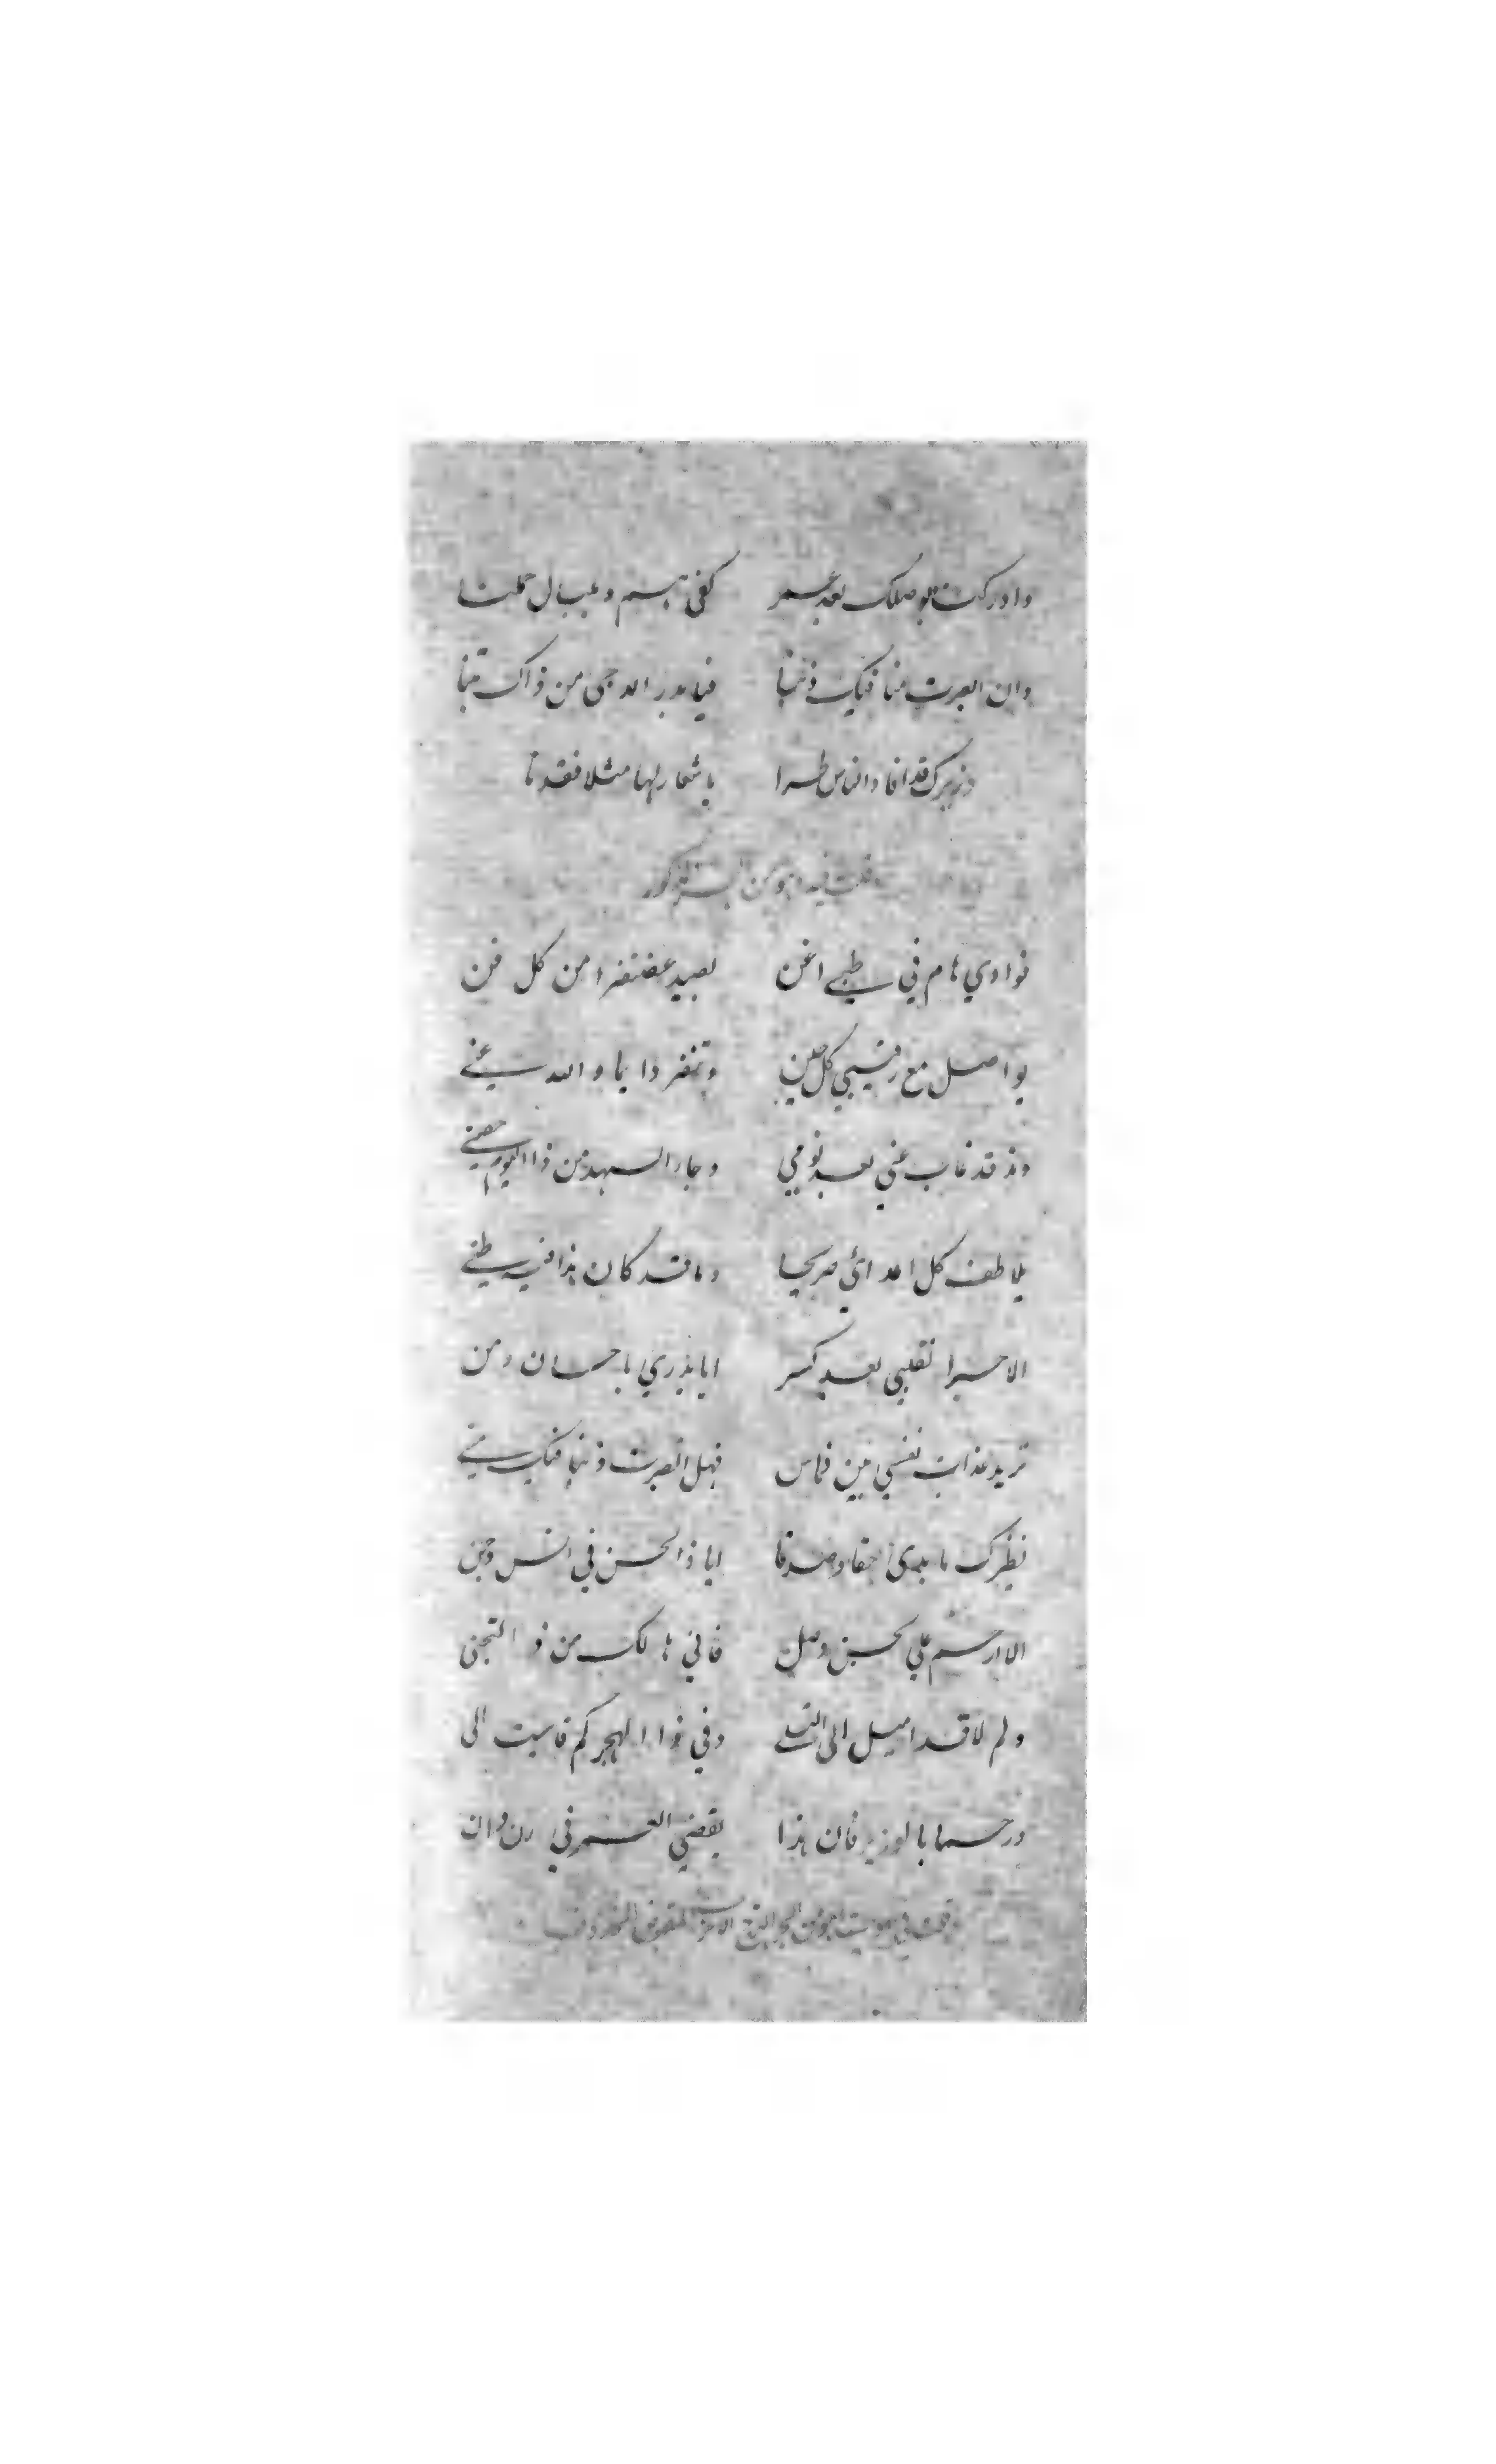 وادركت بوصلك بعد عسر كفى بهم وبلبال حملنا
وان ابصرت منا فيك ذنبا فيا بدر الدجى من ذاك تبنا
وزيرك قد افاد الناس طرا باشعار لها مثلا فقدنا
وقلت فيه وهو من البحر المذكور
فوادي هام في ظبي اغن يصيد غضنفرا من كل فن
يواصل مع رقيبي كل حين وينفر دايما والله عني
ومذ قد غاب عني بعد نومي وجار السهد من ذا اليوم جفني
يلاطف كل اعدائي صريحا وما قد كان هذا فيه ظني
الا جبرا لقلبي بعد كسر ايا بدري باحسان ومن
تريد عذاب نفسي بين ناس فهل ابصرت ذنبا فيك مني
نظيرك ما بدى حقا وصدقا ايا ذا الحسن في انس وجن
الا ارحم علي بحسن وصل فاني هالك من ذا التجني
ولم لا قد اميل الى وفي ذا الهجر كم قاسيت اني
ورحما بالوزير فان هذا يقضي العمر في رن وان
وقلت في وهو من البحر